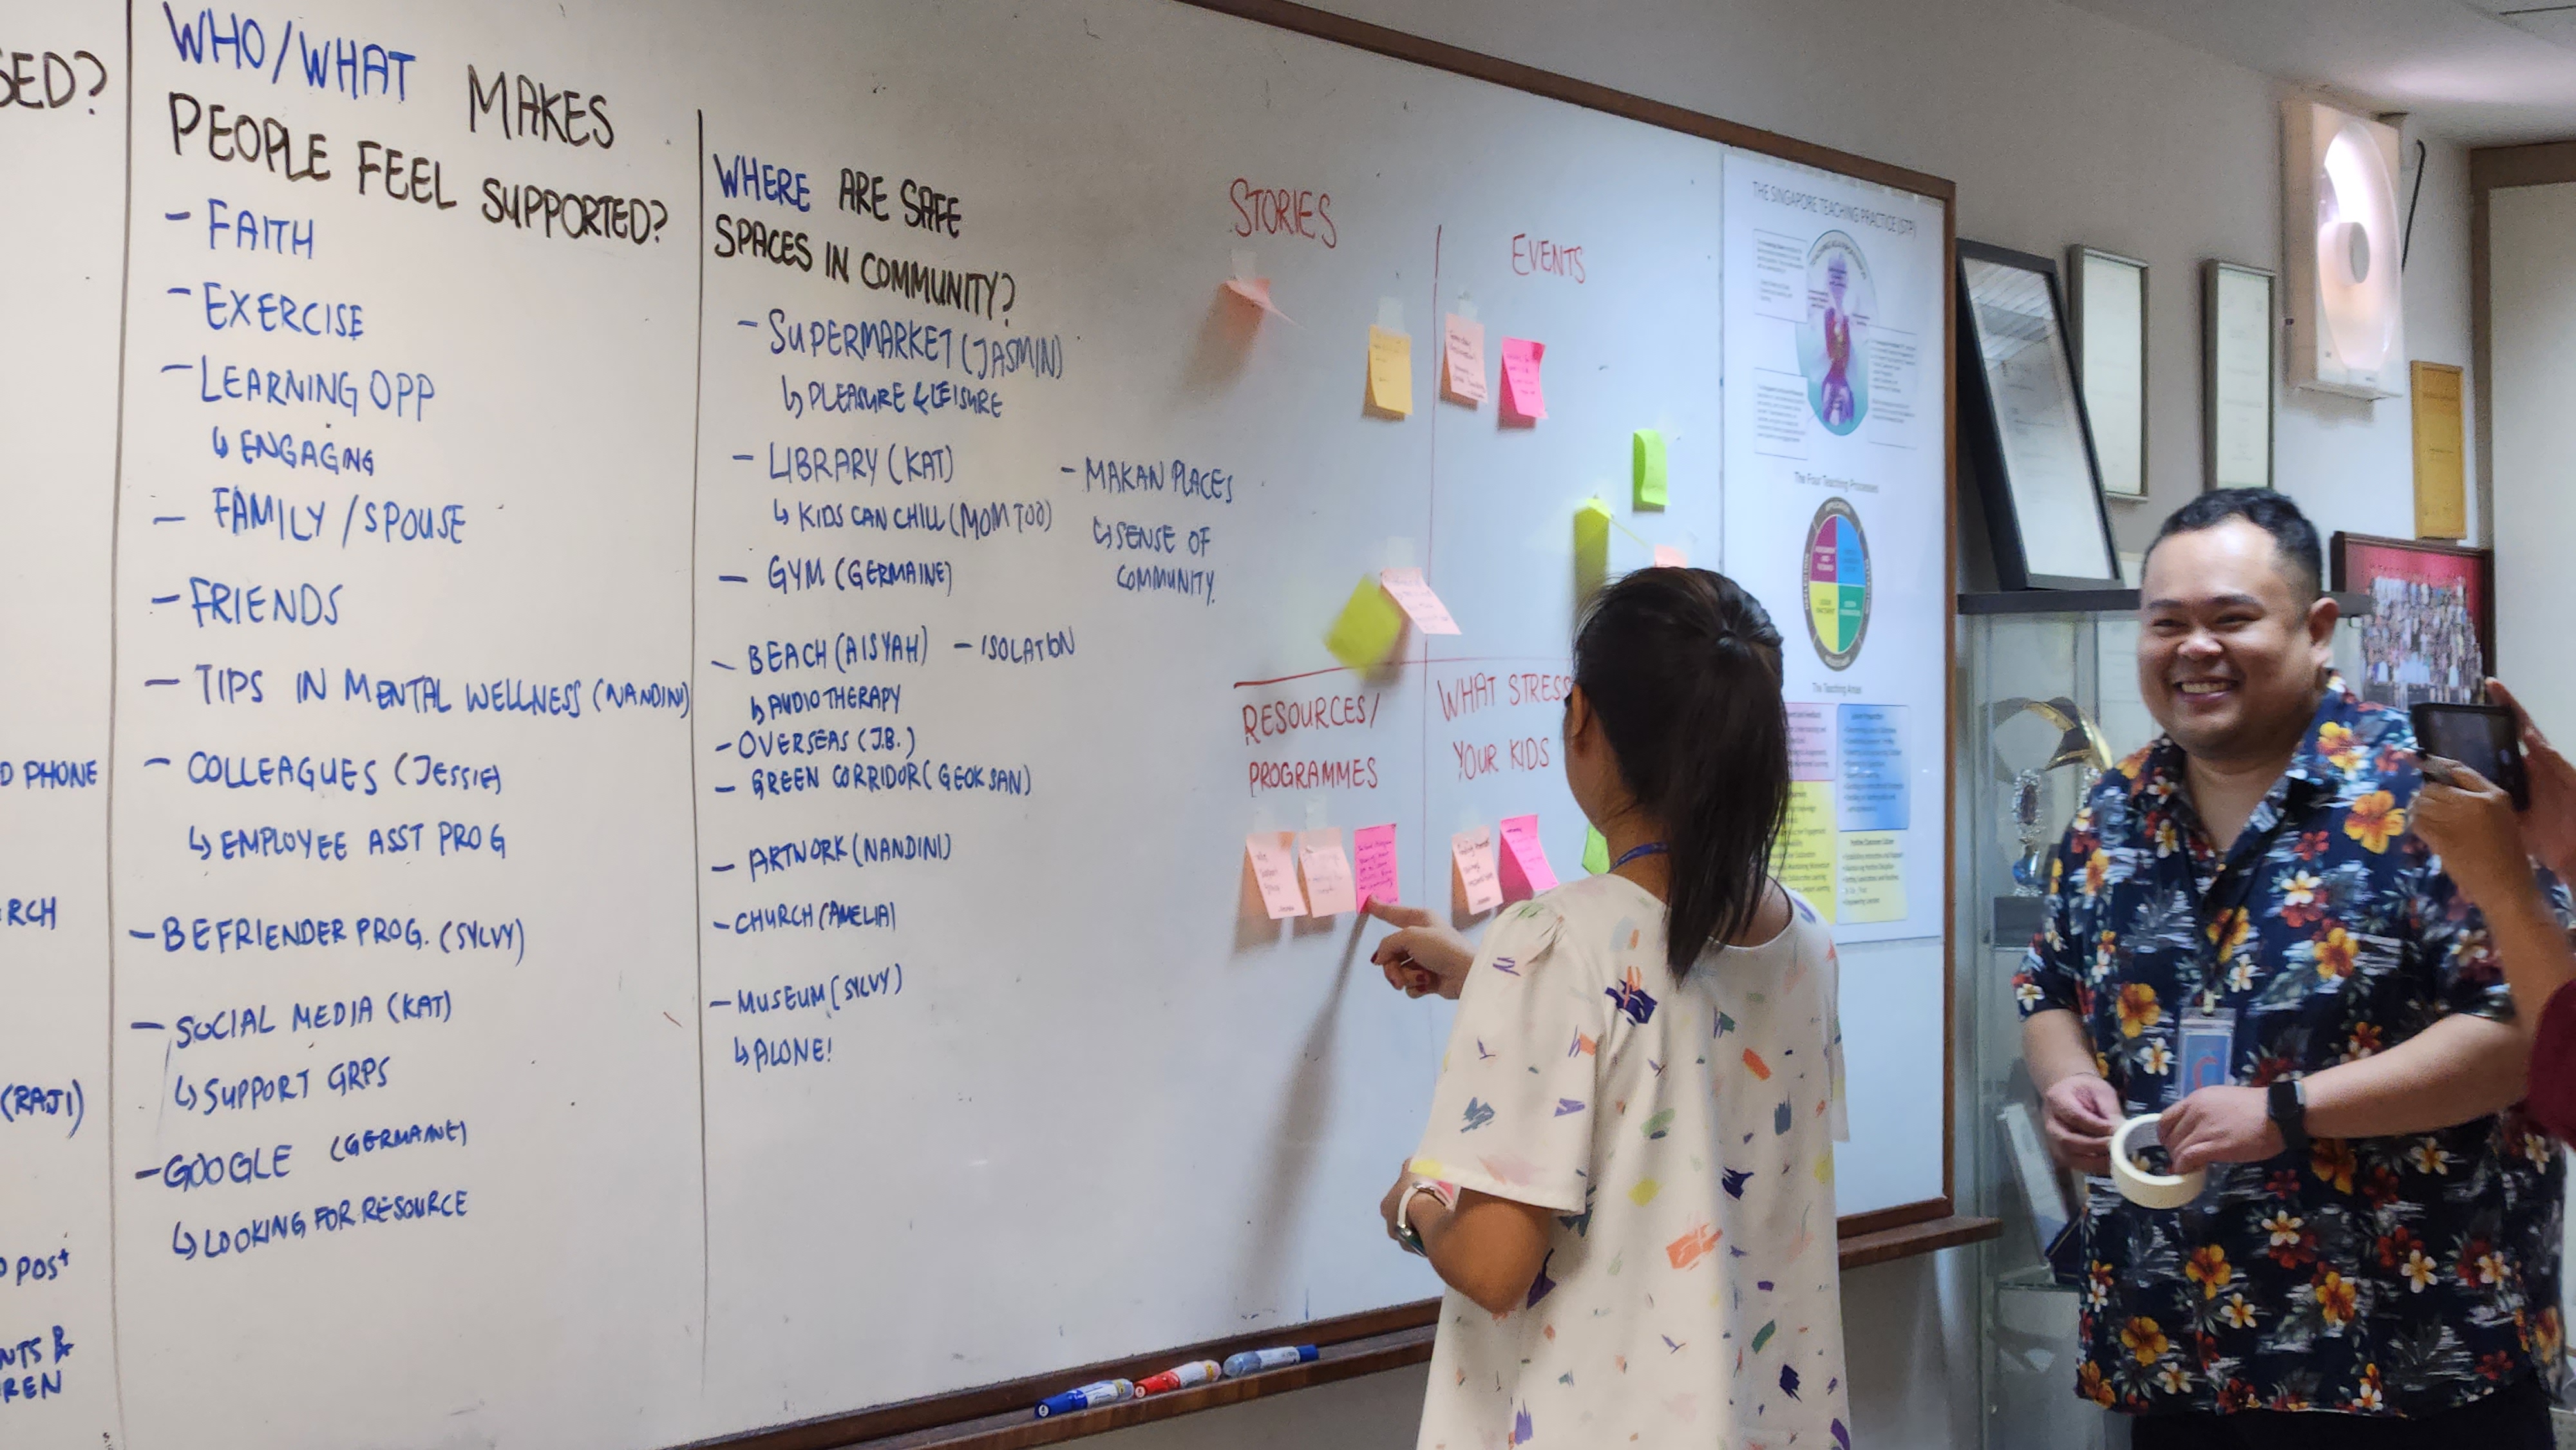 SED?
D PHONE
RCH
(RAJI)
POST
NTS &
REN
WHO/WHAT MAKES
PEOPLE FEEL SUPPORTED?
- FAITH
- EXERCISE
- LEARNING OPP
↳ ENGAGING
- FAMILY / SPOUSE
- FRIENDS
- TIPS IN MENTAL WELLNESS (NANDINI)
- COLLEAGUES (JESSIE)
↳ EMPLOYEE ASST PROG
- BEFRIENDER PROG. (SYLVY)
- SOCIAL MEDIA (KAT)
↳ SUPPORT GRPS
- GOOGLE (GERMAINE)
↳ LOOKING FOR RESOURCE
WHERE ARE SAFE
SPACES IN COMMUNITY?
- SUPERMARKET (JASMIN)
↳ PLEASURE & LEISURE
- LIBRARY (KAT)
↳ KIDS CAN CHILL (MOM TOO)
- GYM (GERMAINE)
- BEACH (AISYAH) - ISOLATION
↳ AUDIO THERAPY
- OVERSEAS (J.B.)
- GREEN CORRIDOR (GEOK SAN)
- ARTWORK (NANDINI)
- CHURCH (AMELIA)
- MUSEUM (SYLVY)
↳ ALONE!
- MAKAN PLACES
↳ SENSE OF
COMMUNITY.
STORIES
EVENTS
RESOURCES/
PROGRAMMES
WHAT STRESS
YOUR KIDS
THE SINGAPORE TEACHING PRACTICE (STP)
The Four Teaching Processes
The Teaching Areas